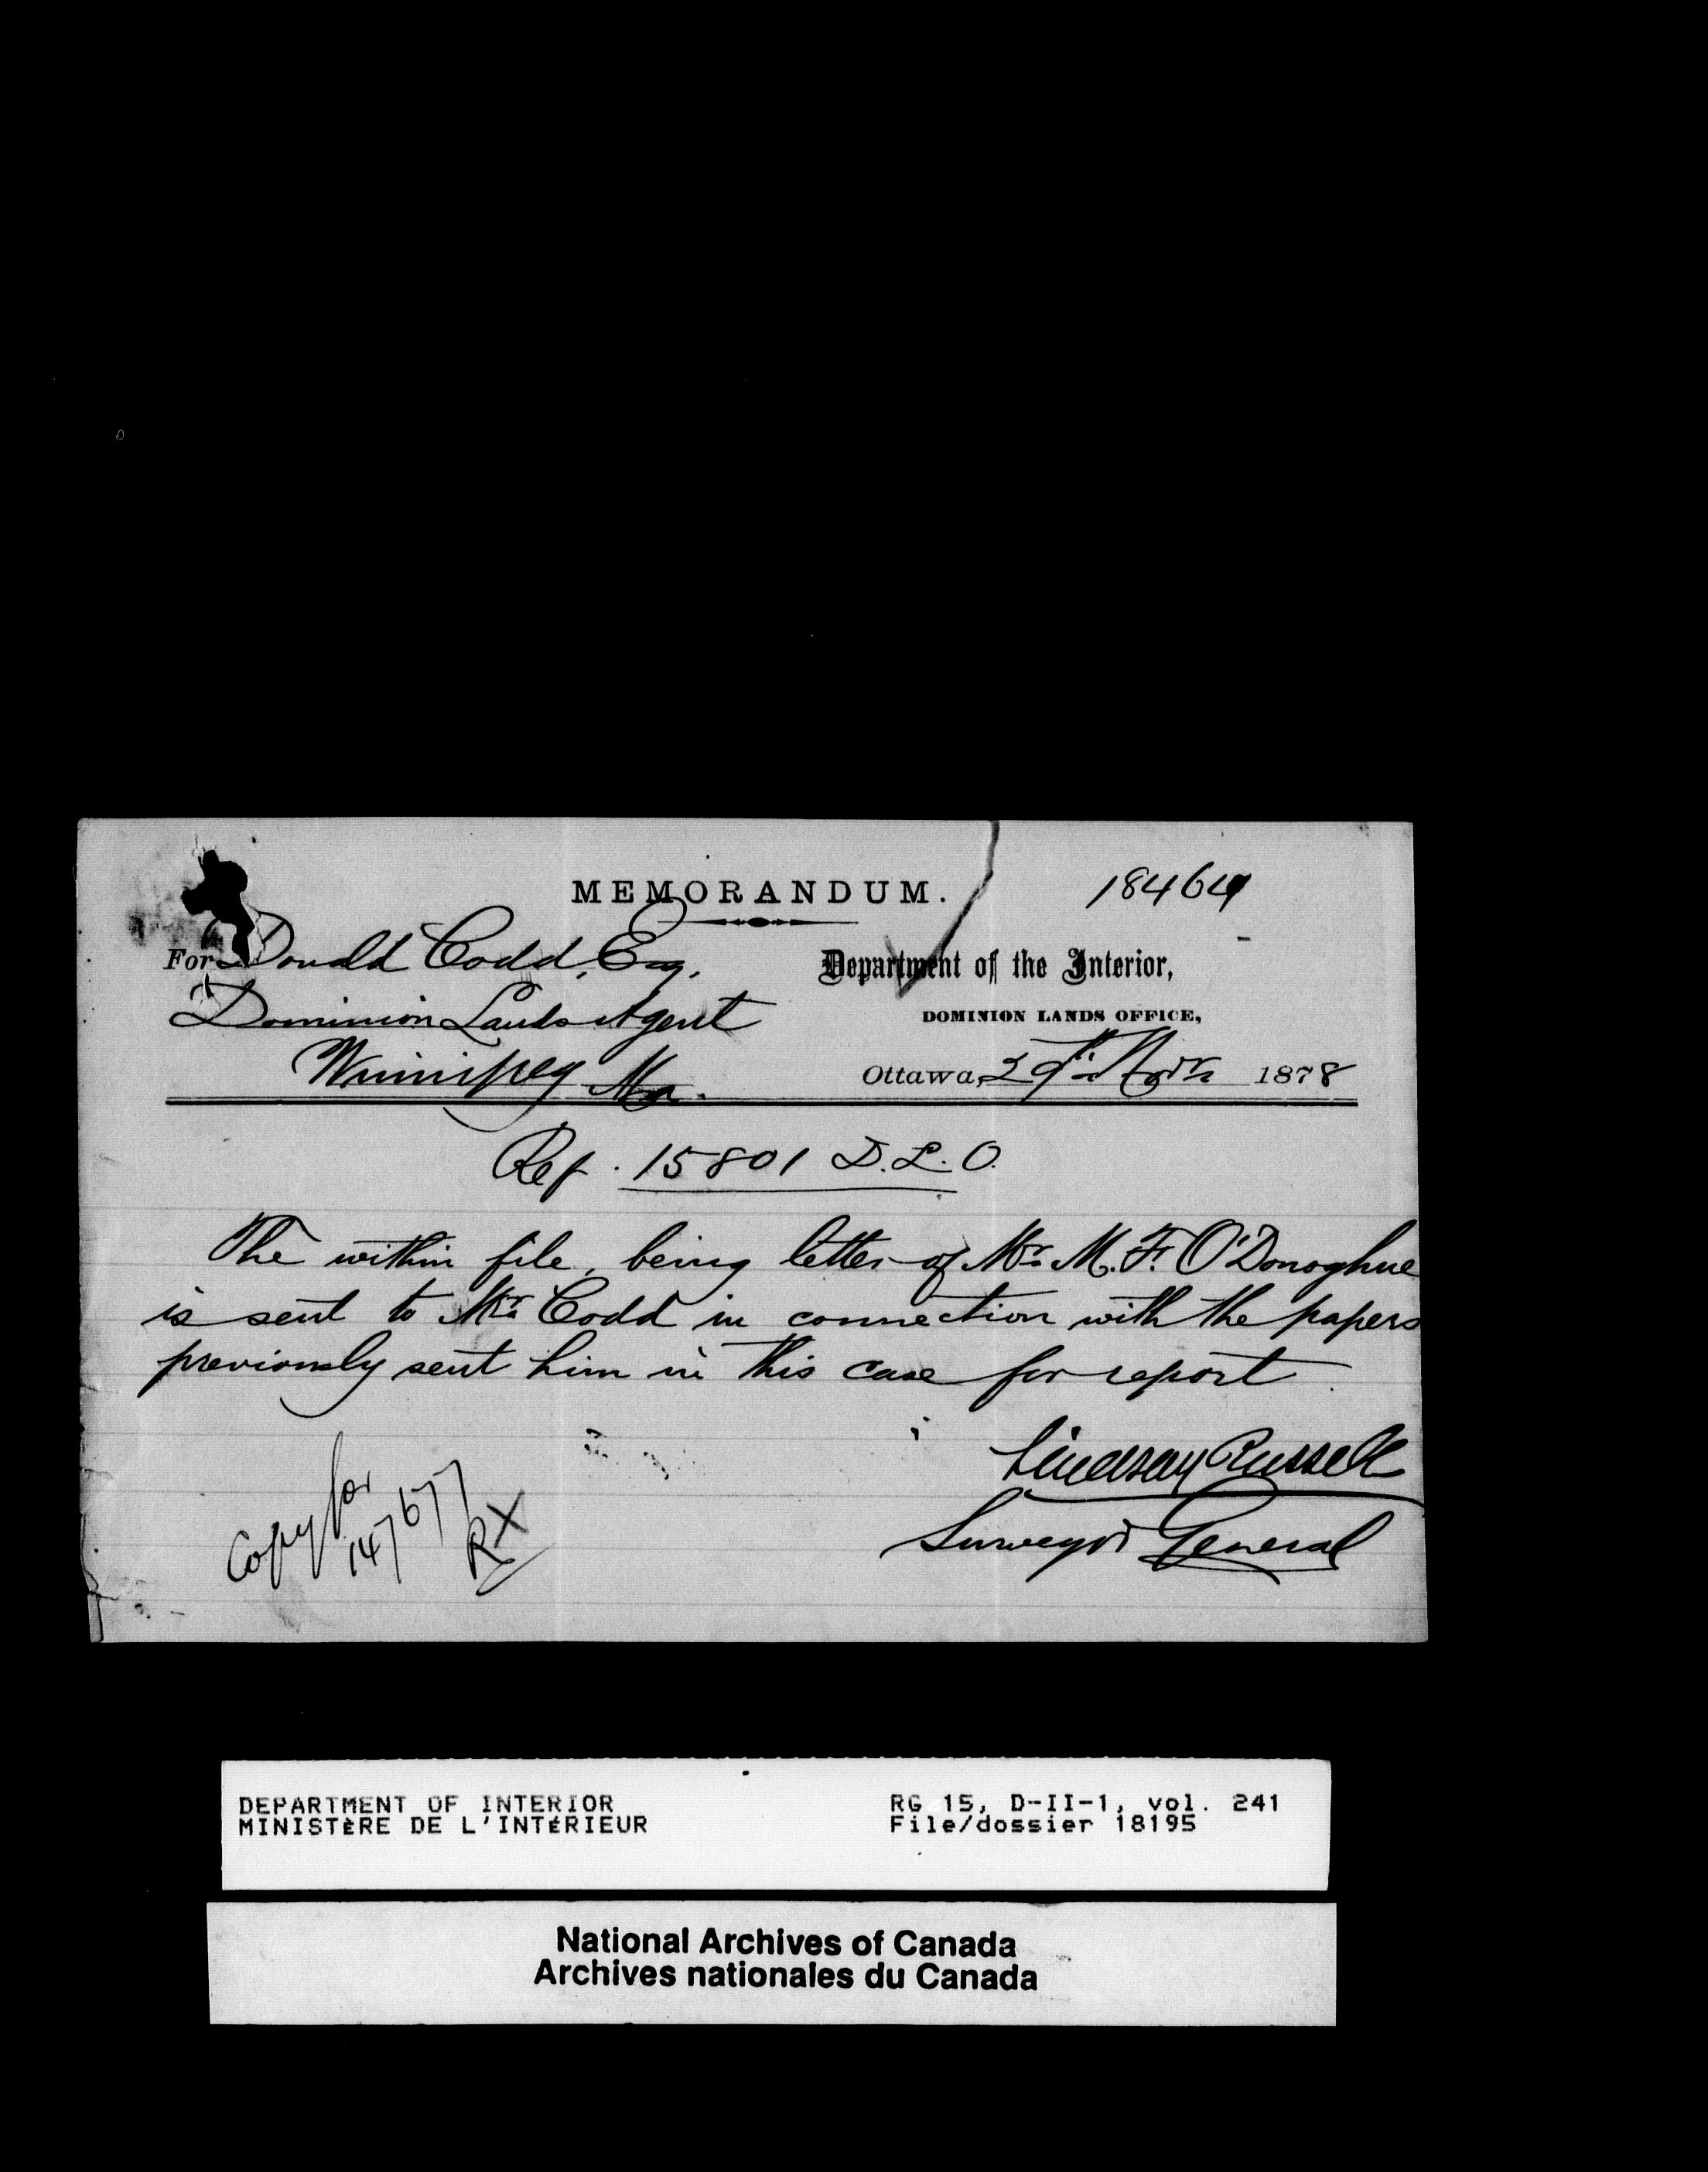 MEMORANDUM.
18464
For Donald Codd, Esq.
Dominion Lands Agent
Winnipeg Ma.
Department of the Interior,
DOMINION LANDS OFFICE,
Ottawa, 29th Novr. 1878
Ref. 15801 D.L.O.
The within file, being letter of Mr. M. F. O'Donoghue
is sent to Mr. Codd in connection with the papers
previously sent him in this case for report.
Lindsay Russell
Surveyor General
Copy for
147677
RX
DEPARTMENT OF INTERIOR
MINISTÈRE DE L'INTÉRIEUR
RG 15, D-II-1, vol. 241
File/dossier 18195
National Archives of Canada
Archives nationales du Canada